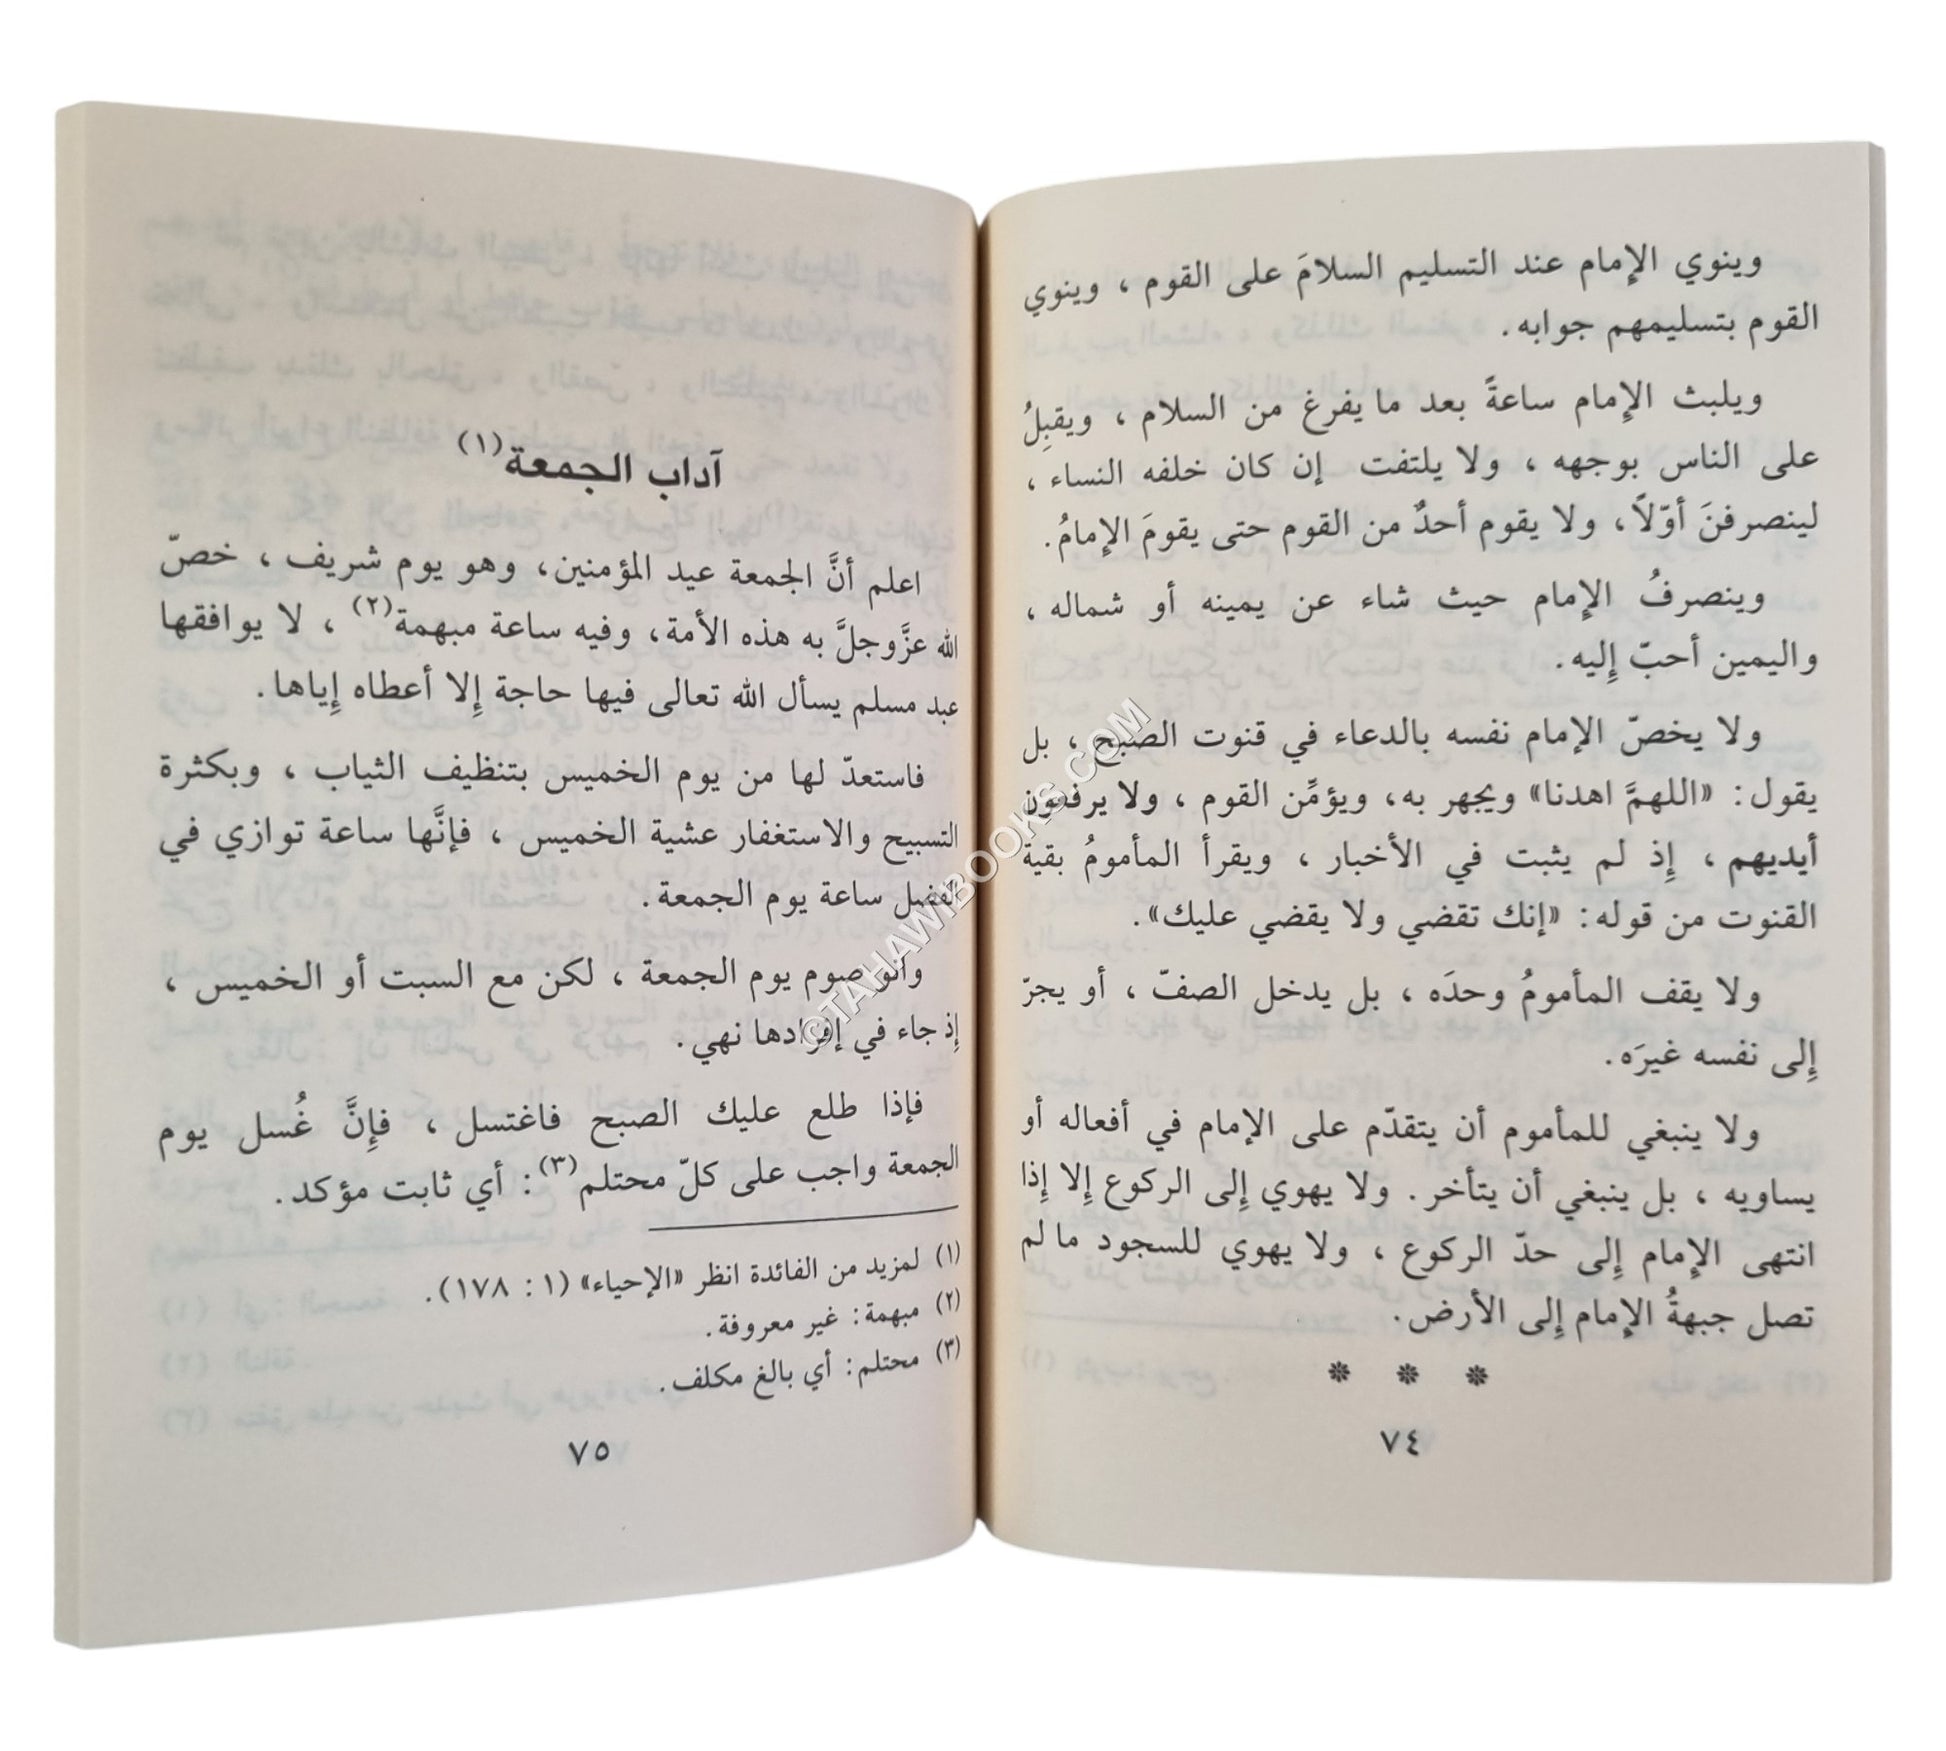 وينوي الإمام عند التسليم السلامَ على القوم ، وينوي
القوم بتسليمهم جوابه.
ويلبث الإمام ساعةً بعد ما يفرغ من السلام ، ويقبِلُ
على الناس بوجهه ، ولا يلتفت إن كان خلفه النساء ،
لينصرفنَ أوّلاً، ولا يقوم أحدٌ من القوم حتى يقومَ الإمامُ.
وينصرفُ الإمام حيث شاء عن يمينه أو شماله ،
واليمين أحبّ إليه.
ولا يخصّ الإمام نفسه بالدعاء في قنوت الصبح ، بل
يقول: «اللهمَّ اهدنا» ويجهر به، ويؤمِّن القوم ، ولا يرفعون
أيديهم ، إذ لم يثبت في الأخبار ، ويقرأ المأمومُ بقية
القنوت من قوله: «إنك تقضي ولا يقضي عليك».
ولا يقف المأمومُ وحدَه ، بل يدخل الصفّ ، أو يجرّ
إلى نفسه غيرَه.
ولا ينبغي للمأموم أن يتقدّم على الإمام في أفعاله أو
يساويه ، بل ينبغي أن يتأخر. ولا يهوي إلى الركوع إلا إذا
انتهى الإمام إلى حدّ الركوع ، ولا يهوي للسجود ما لم
تصل جبهةُ الإمام إلى الأرض.
* * *
٧٤
آداب الجمعة(١)
اعلم أنَّ الجمعة عيد المؤمنين، وهو يوم شريف ، خصّ
الله عزَّوجلَّ به هذه الأمة، وفيه ساعة مبهمة(٢) ، لا يوافقها
عبد مسلم يسأل الله تعالى فيها حاجة إلا أعطاه إياها.
فاستعدّ لها من يوم الخميس بتنظيف الثياب ، وبكثرة
التسبيح والاستغفار عشية الخميس ، فإنَّها ساعة توازي في
الفضل ساعة يوم الجمعة.
وانو صوم يوم الجمعة ، لكن مع السبت أو الخميس ،
إذ جاء في إفرادها نهي.
فإذا طلع عليك الصبح فاغتسل ، فإنَّ غُسل يوم
الجمعة واجب على كلّ محتلم(٣): أي ثابت مؤكد.
(١) لمزيد من الفائدة انظر «الإحياء» (١ : ١٧٨).
(٢) مبهمة: غير معروفة.
(٣) محتلم: أي بالغ مكلف.
٧٥
©TAHAWIBOOKS.COM